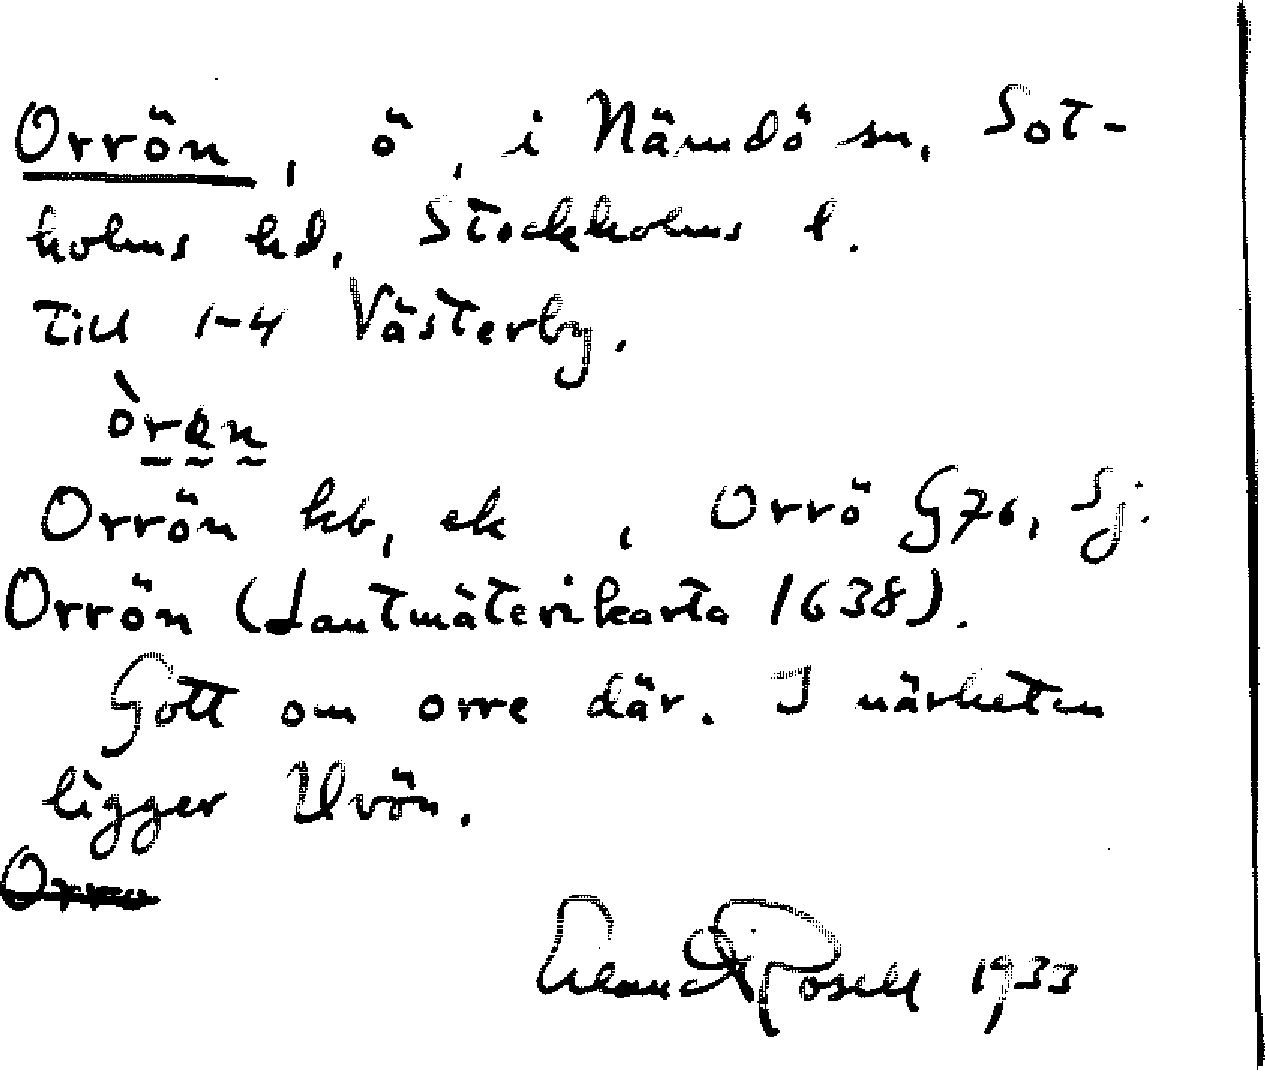 Orrön, ö, i Nämdö sn, Sot-
holms hd, Stockholms l.
Till 1-4 Västerby.
òrǝn
Orrön kb, ek , Orrö G76, Sj.
Orrön (Lantmäterikarta 1638).
Gott om orre där. I närheten
ligger Uvön.
Orrö
Erland Rosell 1933